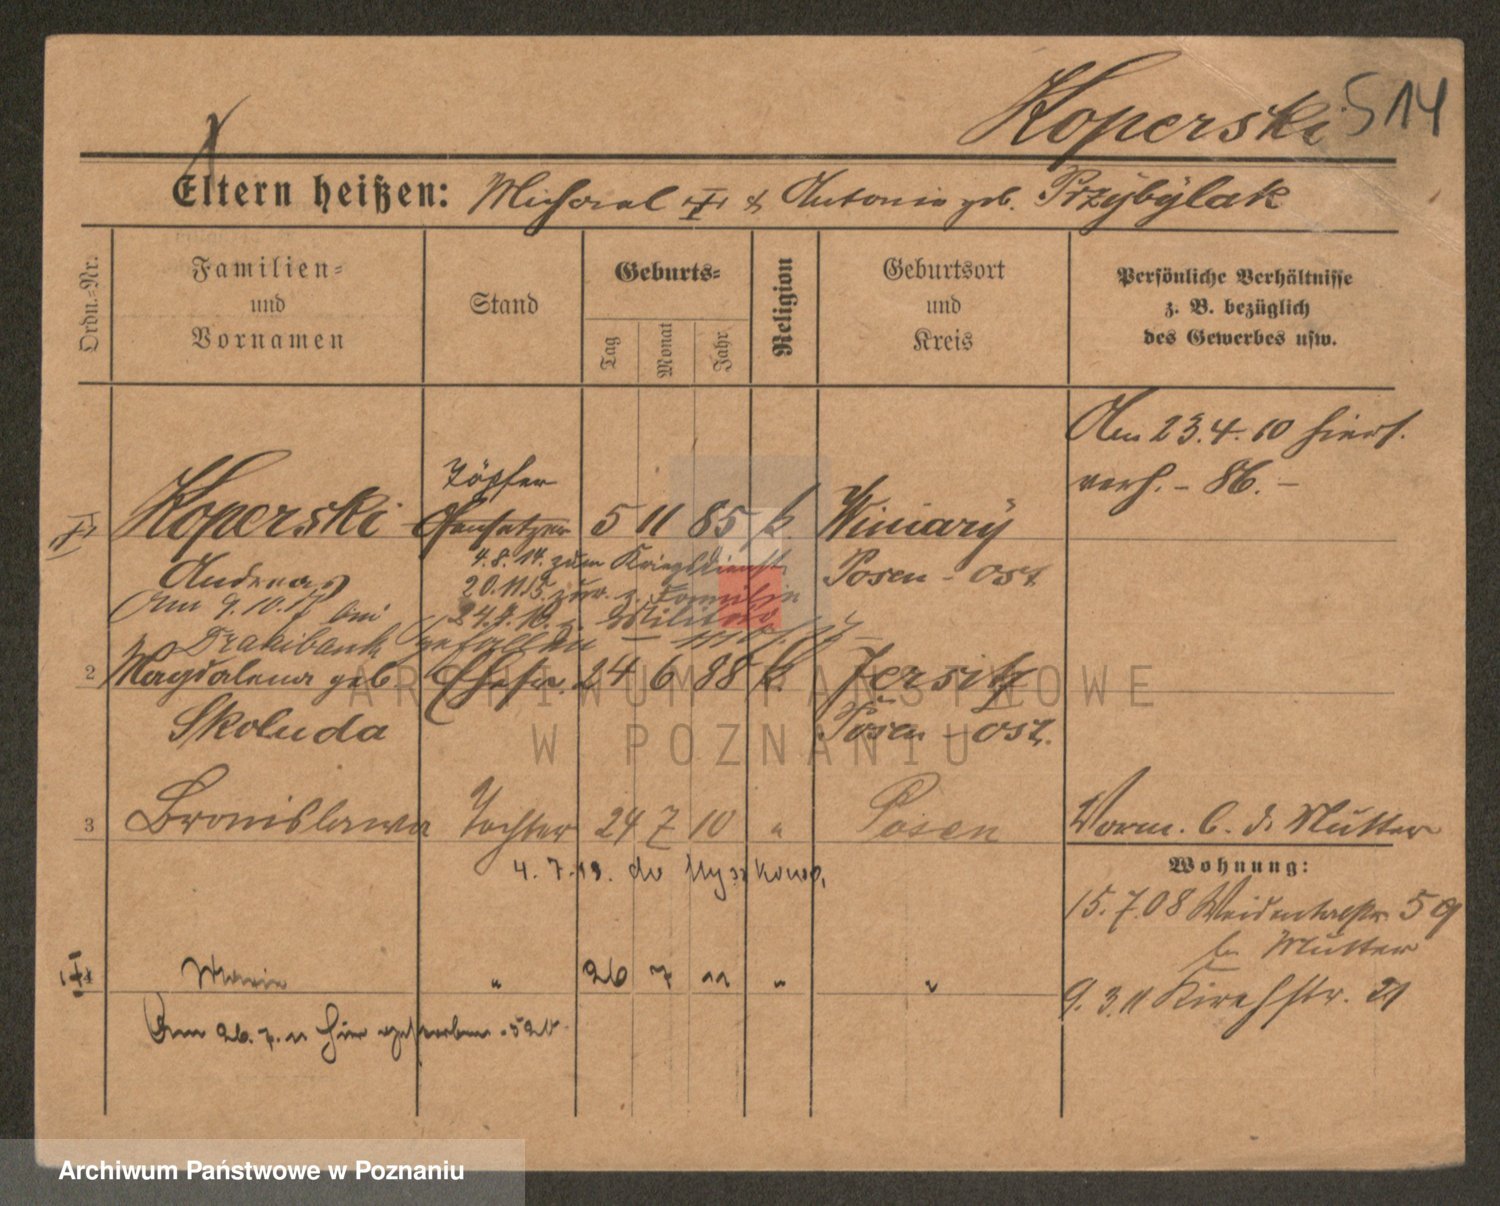 Koperski 514
Eltern heißen: Michael & Antonie geb. Przybÿlak
Ordn.-Nr.
Familien=
und
Vornamen
Stand
Geburts=
Tag
Monat
Jahr
Religion
Geburtsort
und
Kreis
Persönliche Verhältnisse
z. B. bezüglich
des Gewerbes usw.
Am 23.4.10 hier
verh. - 86. -
Töpfer
Koperski Ofensetzer 5 11 85 k. Winiary
Andreas 4.8.14. zum Kriegsdienst Posen - Ost
Am 9.10.17 bei 20.11.15. zur. z. Familie
24.7.16. z. Militär
gefallen
2 Magdalena geb Ehefr. 24 6 88 k. Jersitz
Skoluda Posen - Ost.
3 Bronislawa Tochter 24 7 10 " Posen
Vorm. b. d. Mutter
4. 7. 19. do Wyszkowo,
Wohnung:
15.7.08 59
b. Mutter
Marie " 26 7 11 " "
9.3.11 Kirchstr. 21
Am 26. 7. 11 hier gestorben
ARCHIWUM PAŃSTWOWE
W POZNANIU
Archiwum Państwowe w Poznaniu